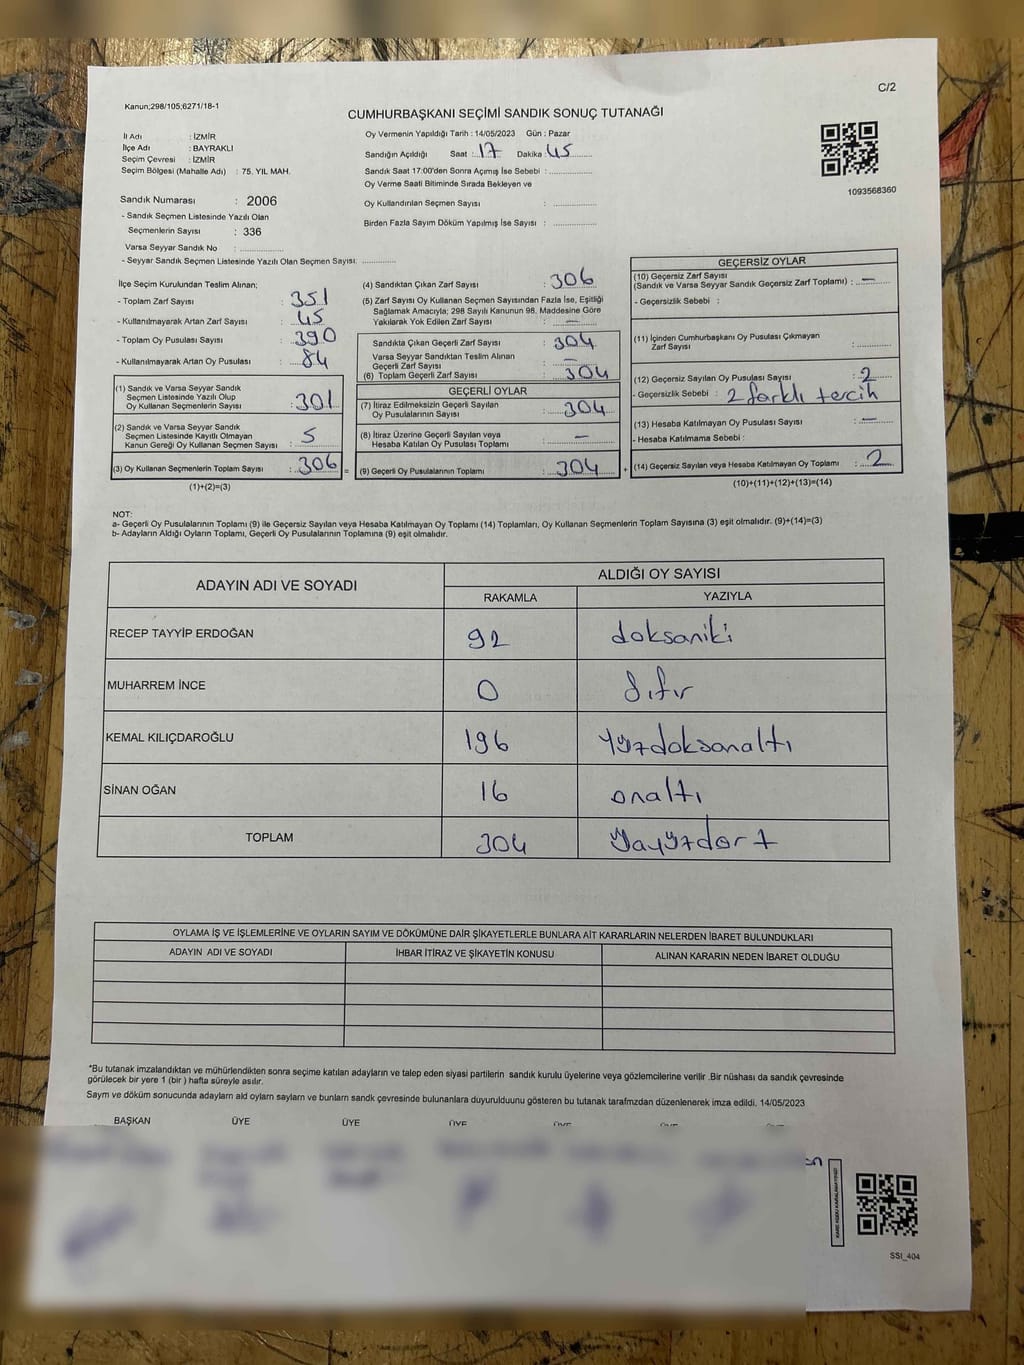 C/2
Kanun;298/105;6271/18-1
CUMHURBAŞKANI SEÇİMİ SANDIK SONUÇ TUTANAĞI
İl Adı : İZMİR
İlçe Adı : BAYRAKLI
Seçim Çevresi : İZMİR
Seçim Bölgesi (Mahalle Adı) : 75. YIL MAH.
Oy Vermenin Yapıldığı Tarih : 14/05/2023 Gün : Pazar
Sandığın Açıldığı Saat : 17 Dakika : 45
Sandık Saat 17:00'den Sonra Açımış İse Sebebi :
Oy Verme Saati Bitiminde Sırada Bekleyen ve
Oy Kullandırılan Seçmen Sayısı :
Birden Fazla Sayım Döküm Yapılmış İse Sayısı :
1093568360
Sandık Numarası : 2006
- Sandık Seçmen Listesinde Yazılı Olan
Seçmenlerin Sayısı : 336
Varsa Seyyar Sandık No :
- Seyyar Sandık Seçmen Listesinde Yazılı Olan Seçmen Sayısı:
İlçe Seçim Kurulundan Teslim Alınan;
- Toplam Zarf Sayısı : 351
- Kullanılmayarak Artan Zarf Sayısı : 45
- Toplam Oy Pusulası Sayısı : 390
- Kullanılmayarak Artan Oy Pusulası : 84
(1) Sandık ve Varsa Seyyar Sandık
Seçmen Listesinde Yazılı Olup
Oy Kullanan Seçmenlerin Sayısı : 301
(2) Sandık ve Varsa Seyyar Sandık
Seçmen Listesinde Kayıtlı Olmayan
Kanun Gereği Oy Kullanan Seçmen Sayısı : 5
(3) Oy Kullanan Seçmenlerin Toplam Sayısı : 306 =
(1)+(2)=(3)
(4) Sandıktan Çıkan Zarf Sayısı : 306
(5) Zarf Sayısı Oy Kullanan Seçmen Sayısından Fazla İse, Eşitliği
Sağlamak Amacıyla; 298 Sayılı Kanunun 98. Maddesine Göre
Yakılarak Yok Edilen Zarf Sayısı : —
Sandıkta Çıkan Geçerli Zarf Sayısı : 304
Varsa Seyyar Sandıktan Teslim Alınan
Geçerli Zarf Sayısı : —
(6) Toplam Geçerli Zarf Sayısı : 304
GEÇERLİ OYLAR
(7) İtiraz Edilmeksizin Geçerli Sayılan
Oy Pusulalarının Sayısı : 304
(8) İtiraz Üzerine Geçerli Sayılan veya
Hesaba Katılan Oy Pusulası Toplamı : —
(9) Geçerli Oy Pusulalarının Toplamı : 304 +
GEÇERSİZ OYLAR
(10) Geçersiz Zarf Sayısı
(Sandık ve Varsa Seyyar Sandık Geçersiz Zarf Toplamı) : —
- Geçersizlik Sebebi :
(11) İçinden Cumhurbaşkanı Oy Pusulası Çıkmayan
Zarf Sayısı :
(12) Geçersiz Sayılan Oy Pusulası Sayısı : 2
- Geçersizlik Sebebi : 2 farklı tercih
(13) Hesaba Katılmayan Oy Pusulası Sayısı : —
- Hesaba Katılmama Sebebi :
(14) Geçersiz Sayılan veya Hesaba Katılmayan Oy Toplamı : 2
(10)+(11)+(12)+(13)=(14)
NOT:
a- Geçerli Oy Pusulalarının Toplamı (9) ile Geçersiz Sayılan veya Hesaba Katılmayan Oy Toplamı (14) Toplamları, Oy Kullanan Seçmenlerin Toplam Sayısına (3) eşit olmalıdır. (9)+(14)=(3)
b- Adayların Aldığı Oyların Toplamı, Geçerli Oy Pusulalarının Toplamına (9) eşit olmalıdır.
ADAYIN ADI VE SOYADI
ALDIĞI OY SAYISI
RAKAMLA YAZIYLA
RECEP TAYYİP ERDOĞAN 92 doksaniki
MUHARREM İNCE 0 Sıfır
KEMAL KILIÇDAROĞLU 196 Yüzdoksanaltı
SİNAN OĞAN 16 onaltı
TOPLAM 304 üçyüzdört
OYLAMA İŞ VE İŞLEMLERİNE VE OYLARIN SAYIM VE DÖKÜMÜNE DAİR ŞİKAYETLERLE BUNLARA AİT KARARLARIN NELERDEN İBARET BULUNDUKLARI
ADAYIN ADI VE SOYADI İHBAR İTİRAZ VE ŞİKAYETİN KONUSU ALINAN KARARIN NEDEN İBARET OLDUĞU
*Bu tutanak imzalandıktan ve mühürlendikten sonra seçime katılan adayların ve talep eden siyasi partilerin sandık kurulu üyelerine veya gözlemcilerine verilir .Bir nüshası da sandık çevresinde
görülecek bir yere 1 (bir ) hafta süreyle asılır.
Sayım ve döküm sonucunda adayların ald oyların sayları ve bunların sandk çevresinde bulunanlara duyurulduunu gösteren bu tutanak tarafmzdan düzenlenerek imza edildi. 14/05/2023
BAŞKAN ÜYE ÜYE ÜYE ÜYE ÜYE
SSI_404